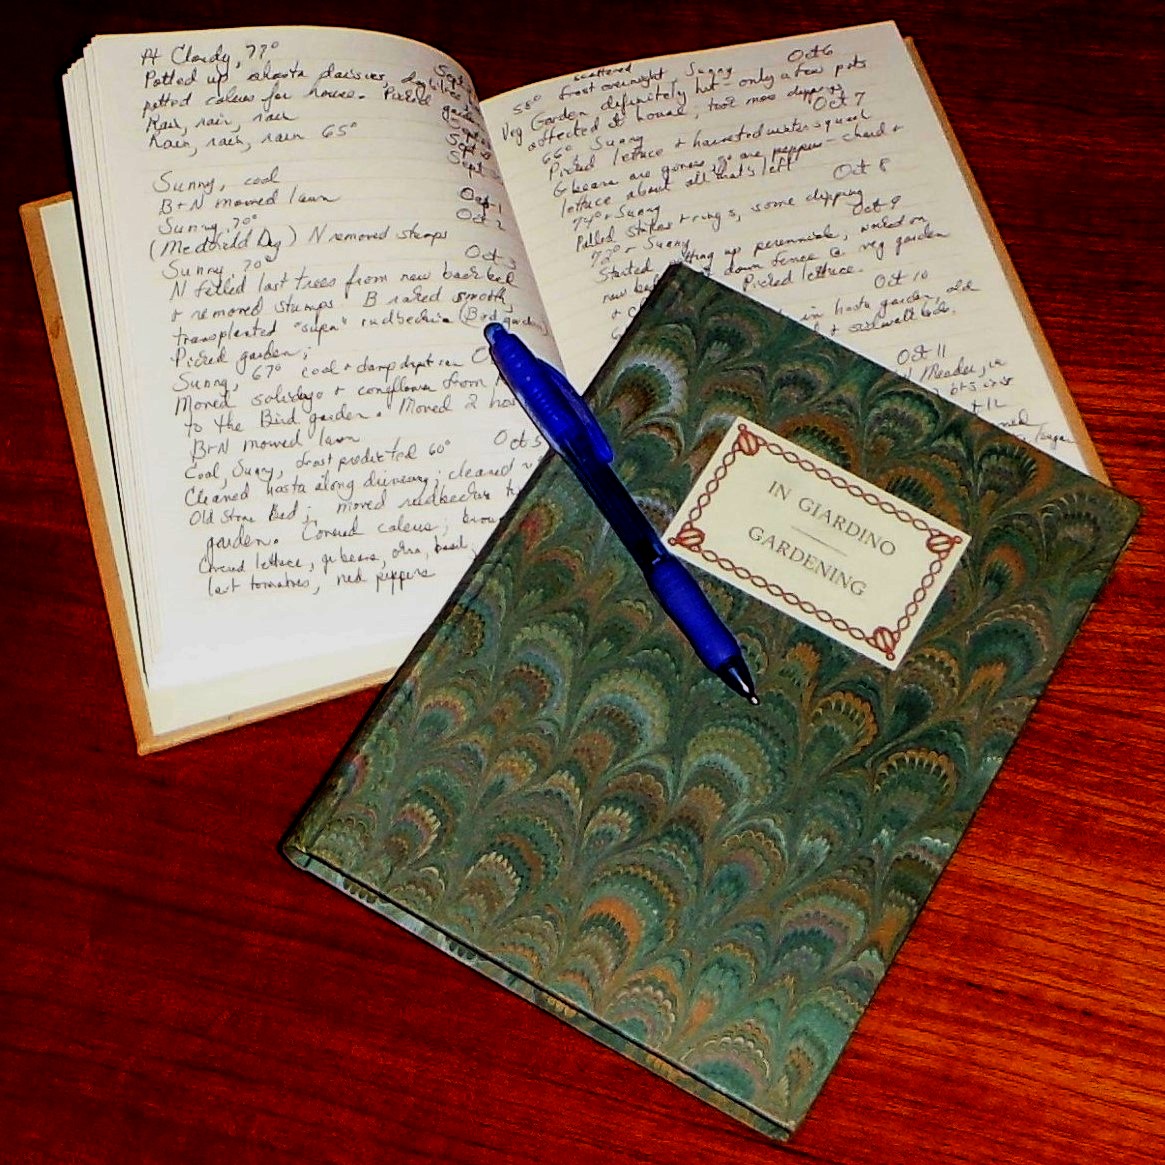 Pt Cloudy, 77° Sept
Potted up shasta daisies, daylilies
potted coleus for house. Picked garden
Rain, rain, rain Sept
Rain, rain, rain 65° Sept
Sept
Sunny, cool
B+N mowed lawn Oct 1
Sunny, 70° Oct 2
(Medicald Day) N removed stumps
Sunny, 70° Oct 3
N felled last trees from new back bed
+ removed stumps. B raked smooth,
transplanted "super" rudbeckia (Bird garden)
Picked garden;
Sunny, 67° cool + damp
Moved solidago + coneflower from
to the Bird garden. Moved 2
B+N mowed lawn
Cool, Sunny, frost predicted 60° Oct 5
Cleaned hosta along driveway; cleaned
Old Stone Bed; moved rudbeckia
garden. Covered coleus;
Covered lettuce, gr beans, okra, basil,
last tomatoes, red peppers
scattered Oct 6
58° frost overnight, Sunny
Veg Garden definitely hit - only a few pots
affected @ house, took more clippings
66° Sunny Oct 7
Picked lettuce + harvested winter squash
G beans are gone as are peppers - chard +
lettuce about all that's left
74° + Sunny Oct 8
Pulled stakes + rings, some clipping
72° + Sunny Oct 9
Started cutting up perennials, worked on
new down fence @ veg garden
Picked lettuce.
Oct 10
in hosta garden, old
+ sidewalk beds.
Oct 11
IN GIARDINO
GARDENING